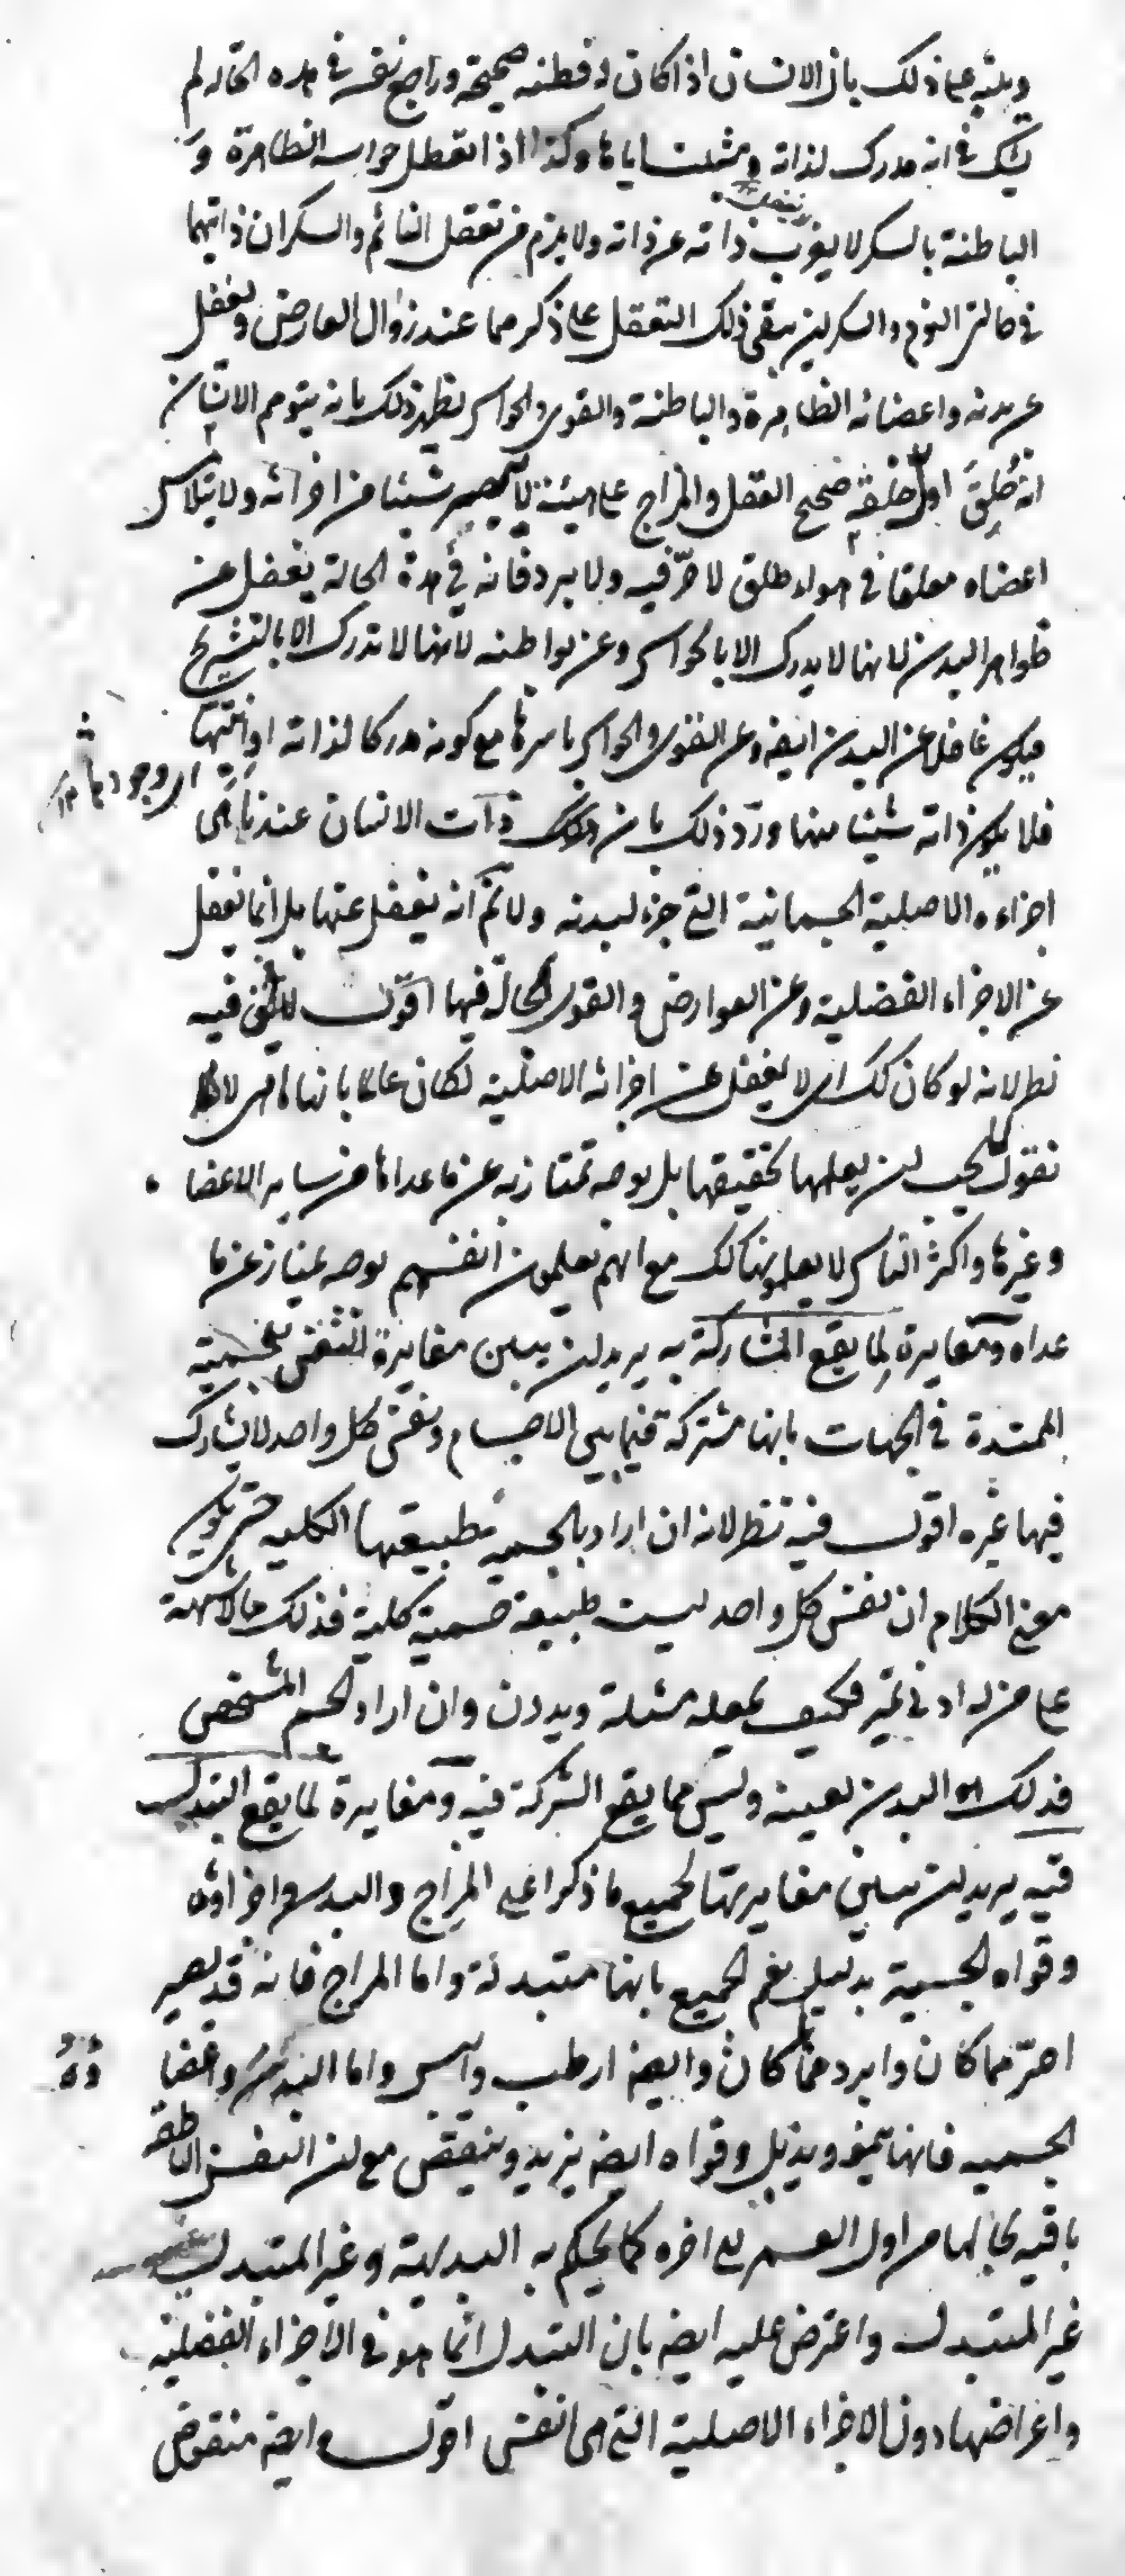 وينبه على ذلك بان الانسان اذا كان له فطنة صحيحة وراجع نفسه في هذه الحالة لم
يشك في انه مدرك لذاته ومثبت اياها وكذا اذا تعطل حواسه الظاهرة و
الباطنة بالسكر لا يغرب ذاته عن ذاته ولا يلزم من تعقل النائم والسكران ذاتيهما
في حالتي النوم والسكر ان يبقى ذلك التعقل على ذكر مما عند زوال العارض ويغفل
عن بدنه واعضائه الظاهرة والباطنة والقوى والحواس يظهر ذلك بانه يتوهم الانسان
انه خُلِقَ اول خلقه صحيح العقل والمزاج على هيئة لا يبصر شيئا من اجزائه ولا يتلامس
اعضاه معلقا في هواء طلق لا حرّ فيه ولا برد فانه في هذه الحالة يغفل عن
ظواهر البدن لانها لا يدرك الا بالحواس وعن بواطنه لانها لا تدرك الا بالتشريح
فيكون غافلا عن البدن ايضا وعن القوى والحواس باسرها مع كونه مدركا لذاته وانيتها
اى وجودها ١٢
فلا يكون ذاته شيئا منها وردّ ذلك بان ذات الانسان عندنا هى
اجزاءه الاصلية الجسمانية التى جزء لبدنه ولا نم انه يغفل عنها بل انما يغفل
عن الاجزاء الفضلية وعن العوارض والقوى الحالة فيها اقول لا يخفى فيه
نظر لانه لو كان كك اى لا يغفل عن اجزائه الاصلية لكان عالما بانها ما هى لا
نقول يجب ان يعلمها بحقيقتها بل بوجه تمتاز به عن ما عداها من ساير الاعضا
وغيرها واكثر الناس لا يعلمونها كك مع انهم يعلمون انفسهم بوجه يمتاز عن ما
عداه ومغايرة لما يقع المشاركة به يريد ان يبين مغايرة النفس للجسمية
الممتدة في الجهات بانها مشتركة فيما بين الاجسام ونفس كل واحد لا يشارك
فيها غيره اقول فيه نظر لانه ان اراد بالجسمية طبيعتها الكلية حتى يكون
معنى الكلام ان نفس كل واحد ليست طبيعة جسمية كلية فذلك مما لا يشتبه
على من له ادنى تميز فكيف يجعله مسئلة ويدون وان اراد الجسم المشخص
فذلك هو البدن بعينه وليس مما يقع الشركة فيه ومغايرة لما يقع التبدل
فيه يريد ان يبين مغايرتها لجميع ما ذكر اعنى المزاج والبدن واجزاؤه
وقواه الجسمية بدليل يعم الجميع بانها متبدلة واما المزاج فانه قد يصير
احرّ مما كان وابرد مما كان وايضا ارطب وايبس واما البدن واعضا
ؤه
الجسمية فانها ينمو ويذبل وقواه ايضا يزيد وينقص مع ان النفس الناطقة
باقية بحالها من اول العمر الى اخره كما يحكم به البديهة وغير المتبدل
غير المتبدل واعترض عليه ايضا بان التبدل انما هو في الاجزاء الفضلية
واعراضها دون الاجزاء الاصلية التى هى النفس اقول وايضا منقوض